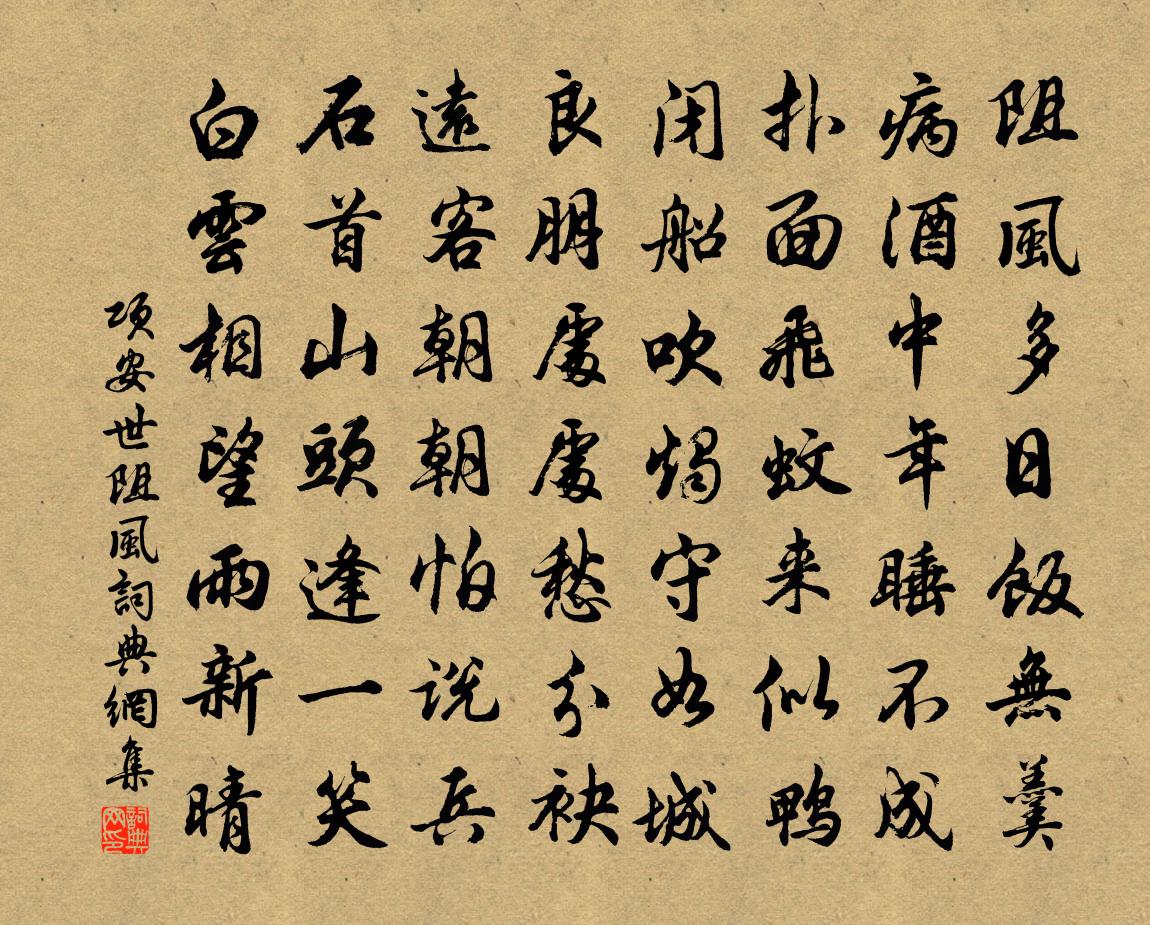 阻風多日飯無羹
病酒中年睡不成
扑面飛蚊来似鴨
闭船吹燭守如城
良朋處處愁分袂
遠客朝朝怕说兵
石首山頭逢一笑
白雲相望雨新晴
项安世阻風詞典網集
詞典網印